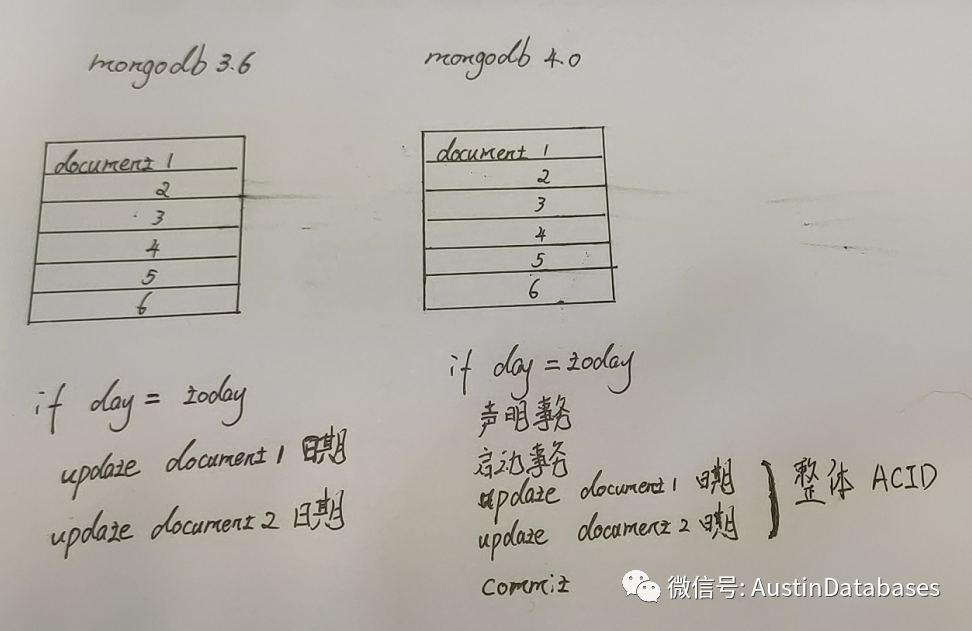 mongodb 3.6
document 1
2
3
4
5
6
if day = today
update document 1 日期
update document 2 日期
mongodb 4.0
document 1
2
3
4
5
6
if day = today
声明事务
启动事务
update document 1 日期
update document 2 日期
整体 ACID
commit
微信号: AustinDatabases